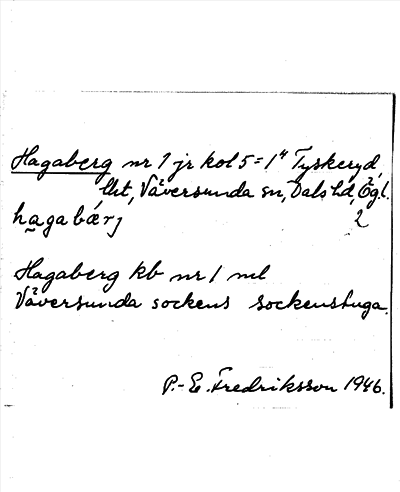 Hagaberg nr 1 jr kol 5 = 1⁴ Tyskeryd,
lht, Väversunda sn, Dals hd, Ögl.
hagabærj 2
Hagaberg kb nr 1 ml
Väversunda sockens sockenstuga.
P.-E. Fredriksson 1946.